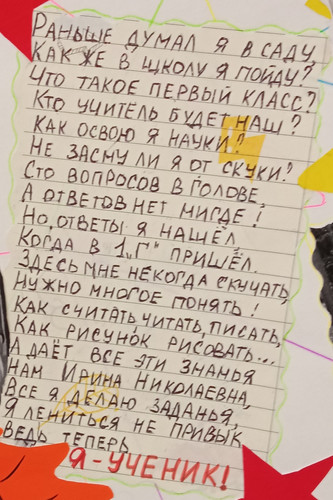 Раньше думал я в саду,
Как же в школу я пойду?
Что такое первый класс?
Кто учитель будет наш?
Как освою я науки?
Не засну ли я от скуки?
Сто вопросов в голове,
А ответов нет мигде!
Но ответы я нашёл,
Когда в 1„Г" пришёл.
Здесь мне некогда скучать,
Нужно многое понять!
Как считать, читать, писать,
Как рисунок рисовать...
А даёт все эти знанья
Нам Ирина Николаевна,
Все я делаю заданья,
Я лениться не привык,
Ведь теперь
Я - УЧЕНИК!